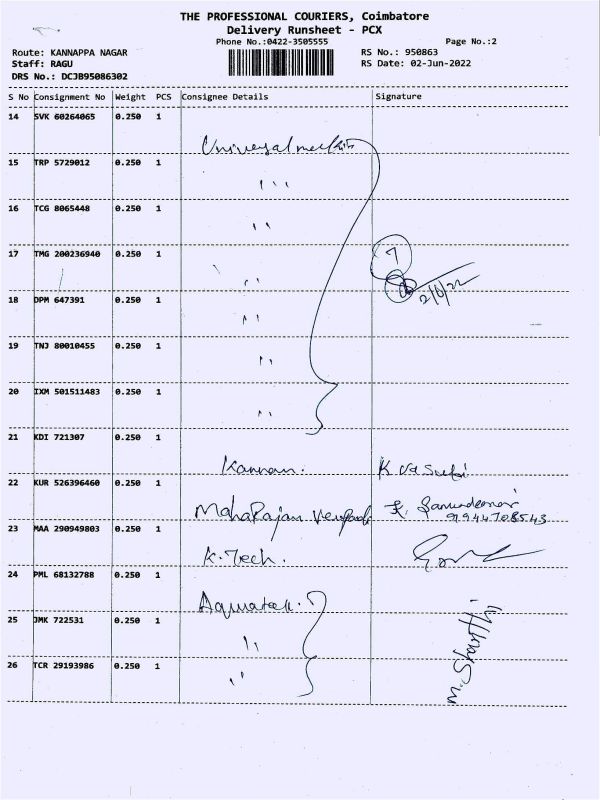 THE PROFESSIONAL COURIERS, Coimbatore
Delivery Runsheet - PCX
Phone No.:0422-3505555 Page No.:2
Route: KANNAPPA NAGAR RS No.: 950863
Staff: RAGU RS Date: 02-Jun-2022
DRS No.: DCJB95086302
S No Consignment No Weight PCS Consignee Details Signature
14 SVK 60264065 0.250 1
Universal
15 TRP 5729012 0.250 1
16 TCG 8065448 0.250 1
17 TMG 200236940 0.250 1
7
2/6/22
18 DPM 647391 0.250 1
19 TNJ 80010455 0.250 1
20 IXM 501511483 0.250 1
21 KDI 721307 0.250 1
Kannan. K Vasuki
22 KUR 526396460 0.250 1
MahaRajan
9944708543
23 MAA 290949803 0.250 1
K. Tech.
24 PML 68132788 0.250 1
Aquatek.
25 JMK 722531 0.250 1
26 TCR 29193986 0.250 1